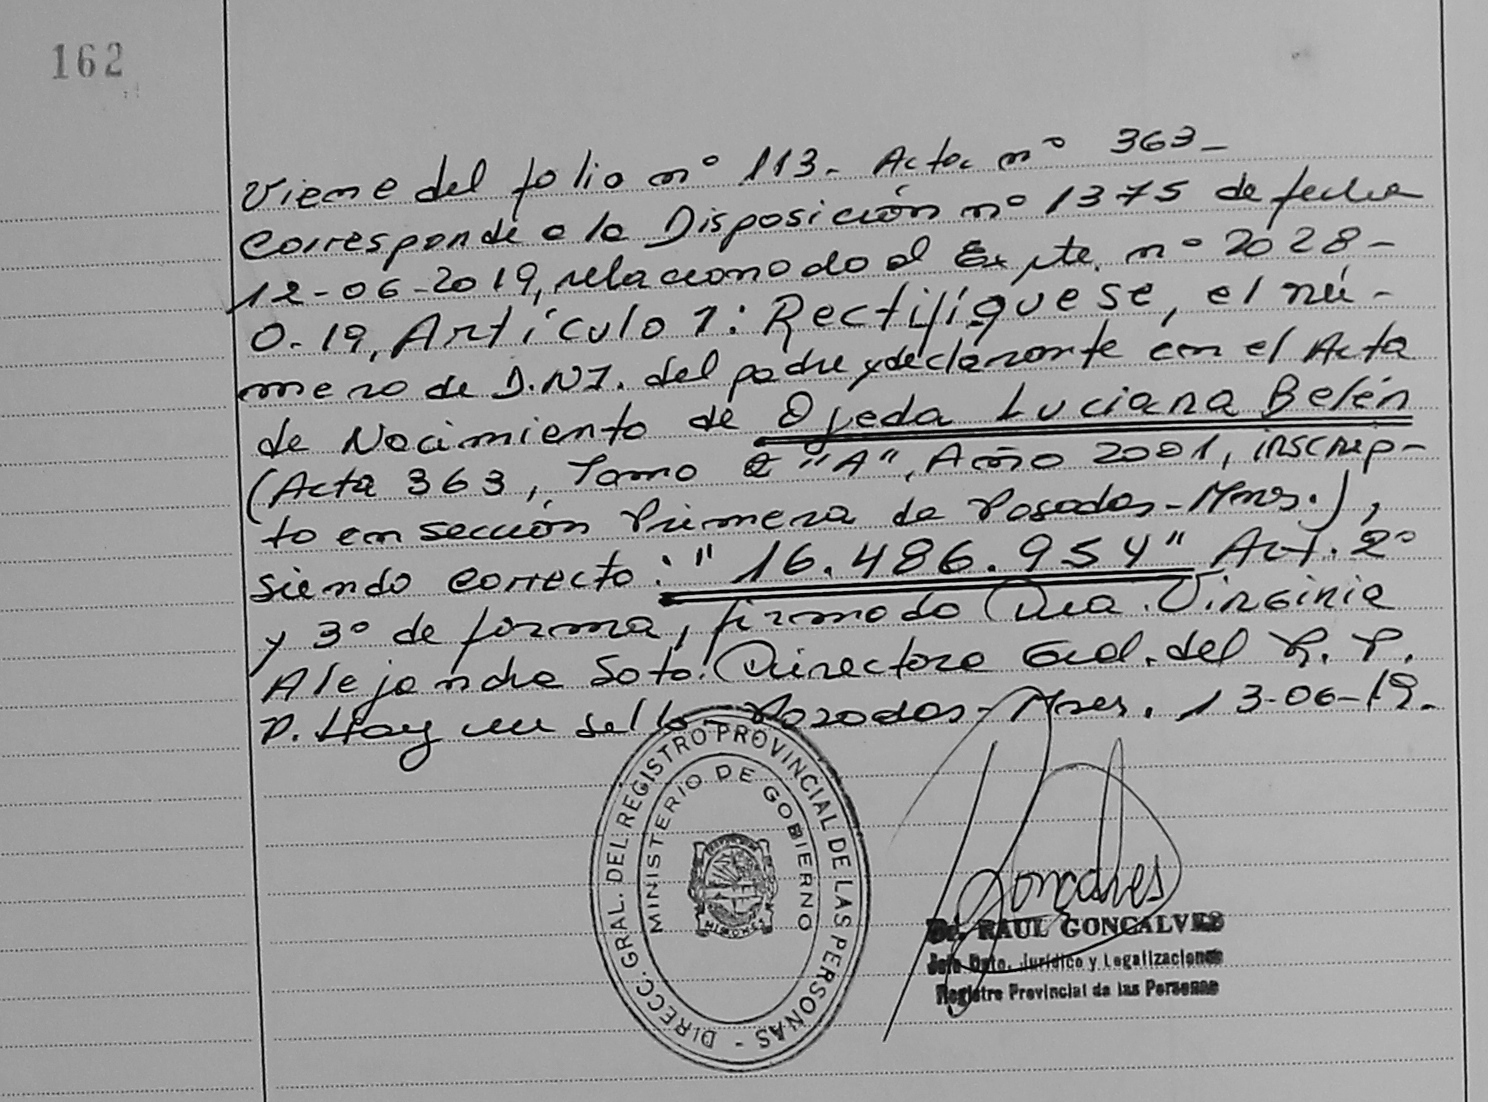 162
Viene del folio nº 113- Acta nº 363-
Corresponde a la Disposición nº 1375 de fecha
12-06-2019, relacionado al Expte. nº 2028-
0-19, Artículo 1: Rectifíquese, el nú-
mero de D.N.I. del padre y declarante en el Acta
de Nacimiento de Ojeda Luciana Belén
(Acta 363, Tomo 2 "A", Año 2001, inscrip-
to en sección Primera de Posadas-Mnes.),
siendo correcto: "16.486.954" Art. 2º
y 3º de forma, firmado Dra. Virginia
Alejandra Soto. Directora Gral. del R. P.
P. Hay un sello- Posadas-Mnes. 13-06-19.
DIRECC. GRAL. DEL REGISTRO PROVINCIAL DE LAS PERSONAS -
MINISTERIO DE GOBIERNO
MISIONES
Goncalves
Dr. RAUL GONCALVES
Jefe Dpto. Jurídico y Legalizaciones
Registro Provincial de las Personas